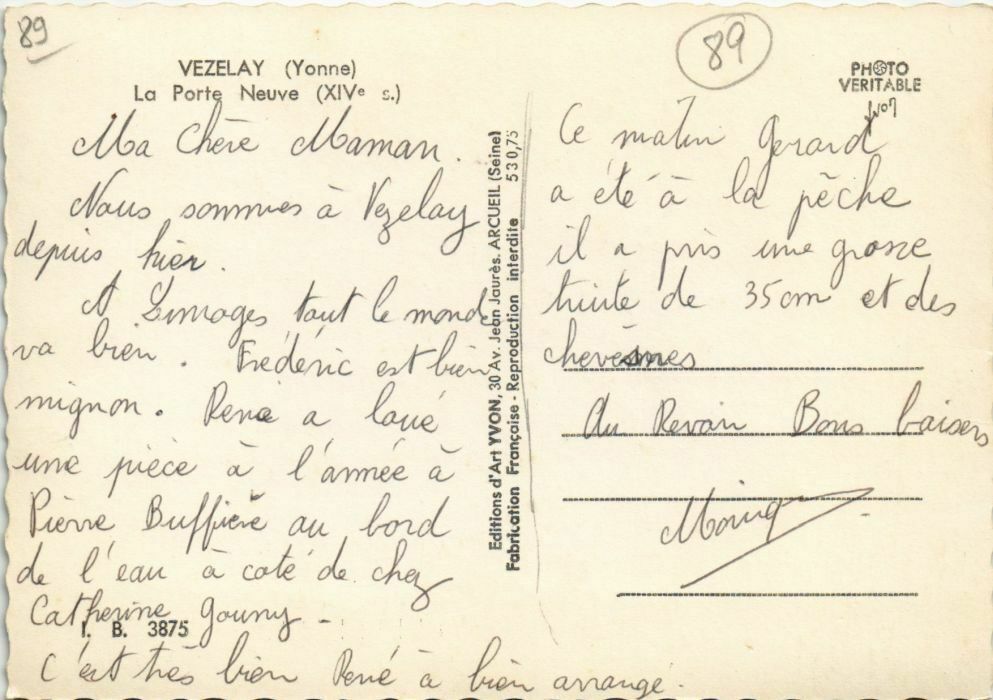 89
VEZELAY (Yonne)
La Porte Neuve (XIVe s.)
Ma Chère Maman.
Nous sommes à Vezelay
depuis hier.
A Limoges tout le monde
va bien. Frédéric est bien
mignon. René a loué
une pièce à l'année à
Pierre Buffière au bord
de l'eau à coté de chez
Catherine Gouny -
I. B. 3875
C'est très bien René à bien arrangé.
Editions d'Art YVON, 30 Av. Jean Jaurès. ARCUEIL (Seine)
Fabrication Française - Reproduction interdite 530,75
89
PHOTO
VERITABLE
Ce matin Gerard
a été à la pêche
il a pris une grosse
truite de 35cm et des
chevesnes
Au Revoir Bons baisers